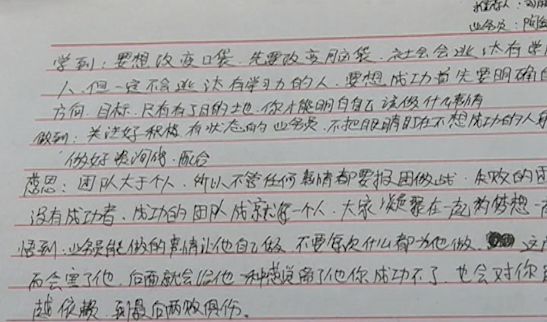 业务员：
学到：要想改变口袋，先要改变脑袋，社会会淘汰有学
人，但一定不会淘汰有学习力的人，要想成功首先要明确自
方向、目标，只有有了目的地，你才能明白自己该做什么事情
做到：关注好积极有状态的业务员，不把眼睛盯在不想成功的人身
做好 配合
感恩：团队大于个人，所以不管任何事情都要报团做战，失败的团
没有成功者，成功的团队成就每一个人，大家凝聚在一起的梦想
悟到：业务员能做的事情让他自己做，不要每次什么都为他做，
而会害了他，后面就会给他一种感觉离了他你成功不了，也会对你
越依赖，到最后两败俱伤。